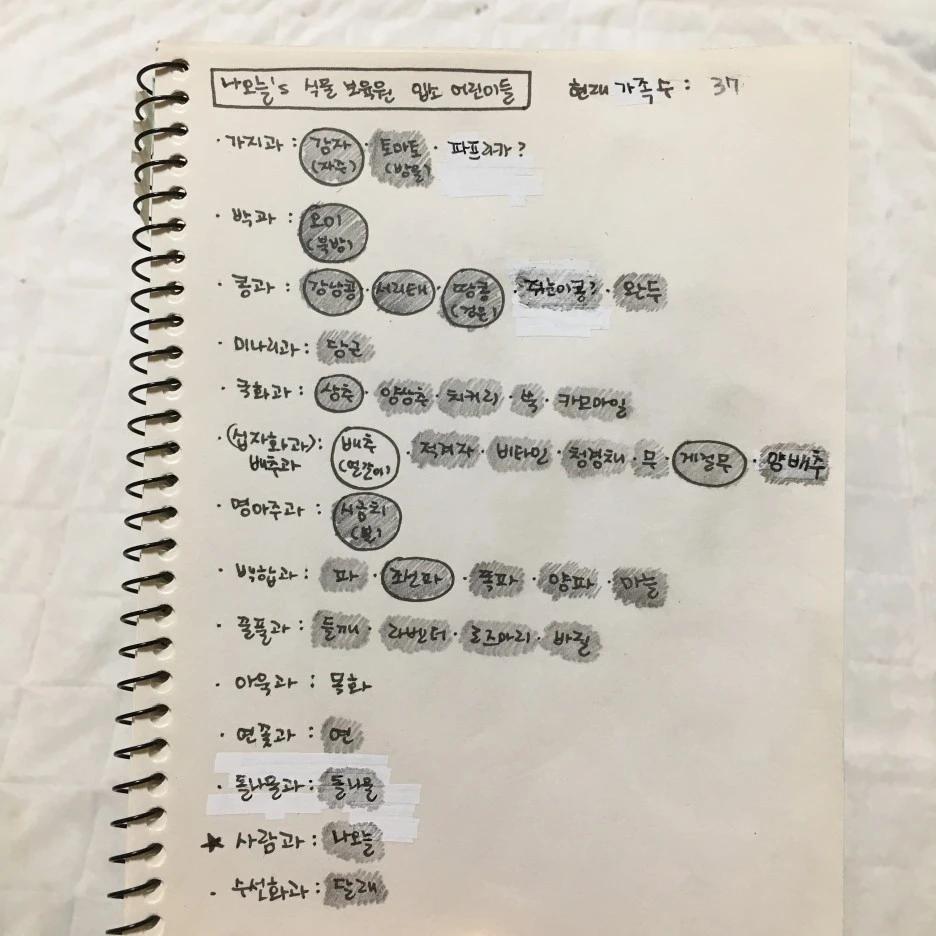 나오늘's 식물 보육원 입소 어린이들 현재 가족수 : 37
· 가지과 : 감자 · 토마토 · 파프리카?
(자주) (방울)
· 박과 : 오이
(북방)
· 콩과 : 강낭콩 · 서리태 · 땅콩 · 쥐눈이콩? · 완두
(검은)
· 미나리과 : 당근
· 국화과 : 상추 · 양상추 · 치커리 · 쑥 · 카모마일
· (십자화과) : 배추 · 적겨자 · 비타민 · 청경채 · 무 · 게걸무 · 양배추
배추과 (얼갈이)
· 명아주과 : 시금치
· 백합과 : 파 · 조선파 · 쪽파 · 양파 · 마늘
· 꿀풀과 : 들깨 · 라벤더 · 로즈마리 · 바질
· 아욱과 : 목화
· 연꽃과 : 연
· 돌나물과 : 돌나물
★ 사람과 : 나오늘
· 수선화과 : 달래